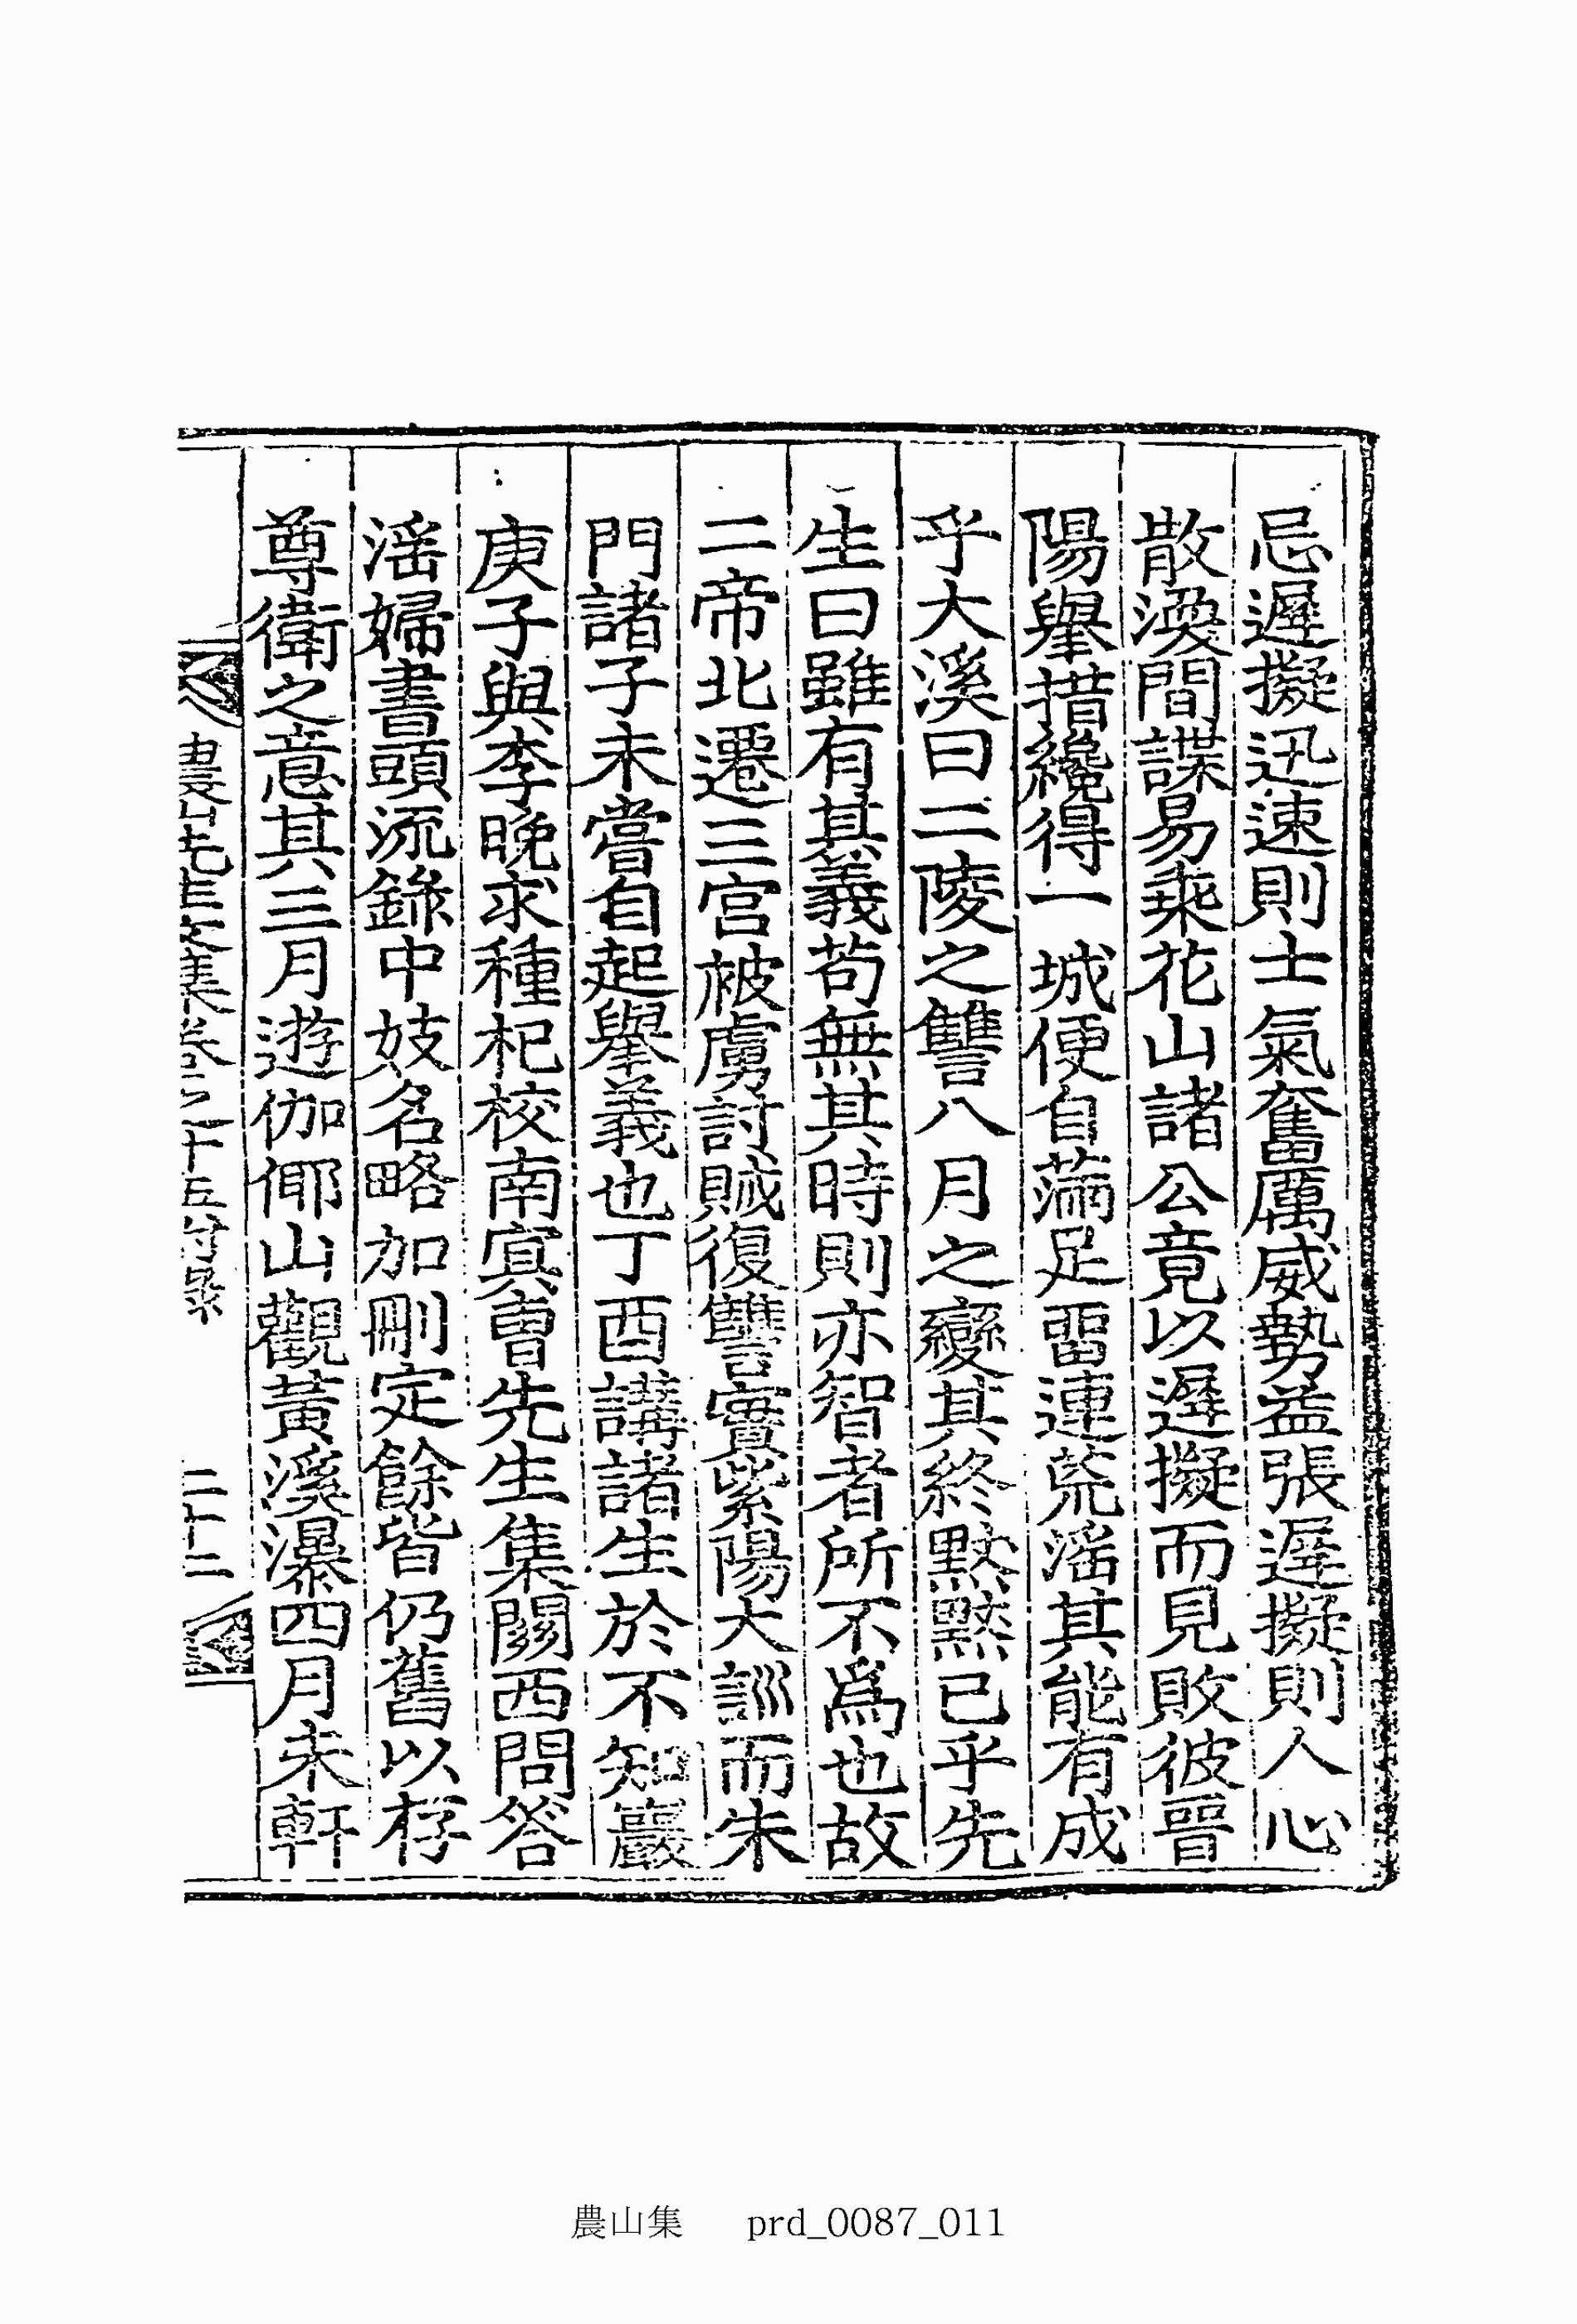 忌遲擬迅速則士氣奮厲威勢益張遲擬則人心
散渙間諜易乘花山諸公竟以遲擬而見敗彼晉
陽擧措纔得一城便自滿足留連荒淫其能有成
乎大溪曰二陵之讐八月之變其終默默已乎先
生曰雖有其義苟無其時則亦智者所不爲也故
二帝北遷三宮被虜討賊復讐實紫陽大訓而朱
門諸子未嘗自起擧義也丁酉講諸生於不知巖
庚子與李晚求種杞校南冥曺先生集關西問答
淫婦書頭流錄中妓名略加刪定餘皆仍舊以存
尊衛之意其三月遊伽倻山觀黃溪瀑四月未軒
農山先生文集卷之十五附錄 二十二
農山集 prd_0087_011